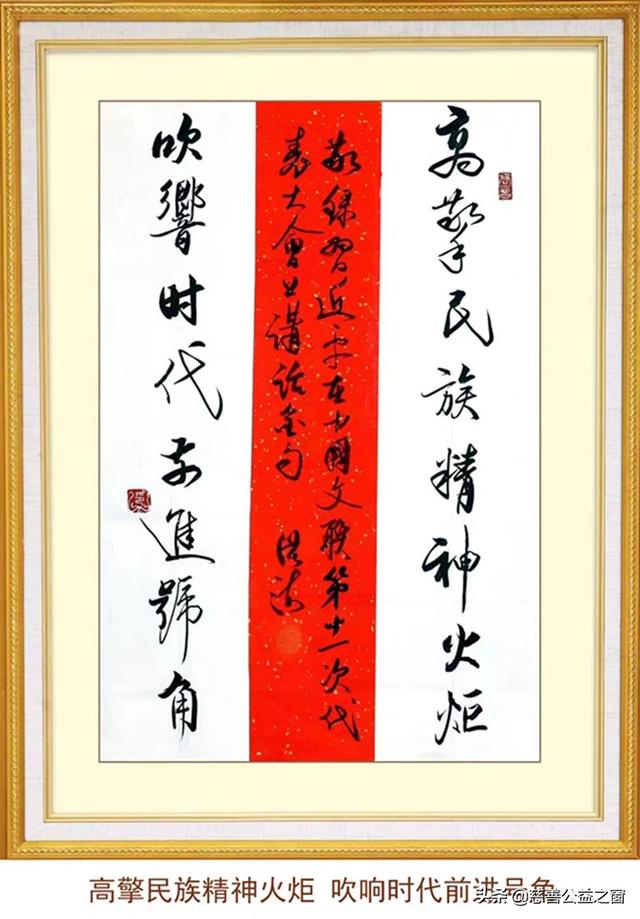 高擎民族精神火炬
敬録習近平在中國文聯第十一次代
表大會上講話金句
吹響时代前進號角
高擎民族精神火炬 吹响时代前进号角
头条@慈善公益之窗